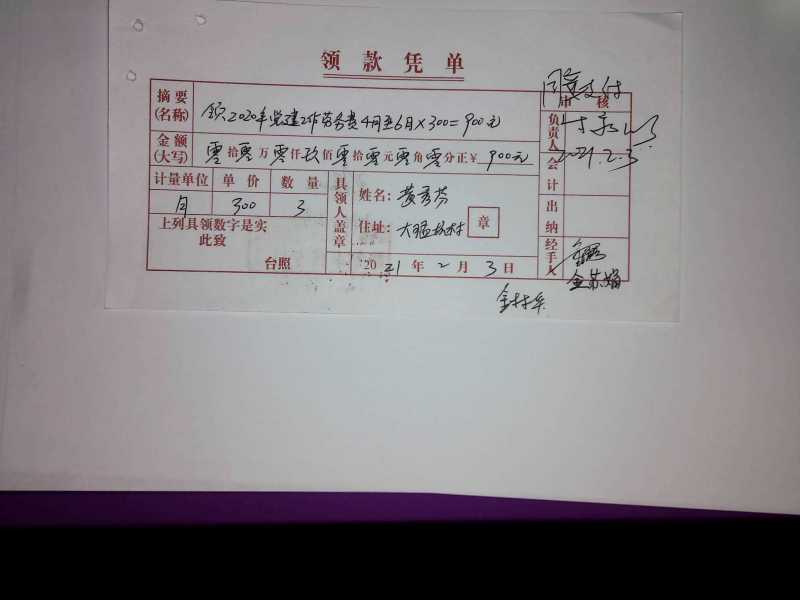 领款凭单
同意支付
摘要(名称) 领2020年党建工作劳务费4月至6月×300=900元
审核
负责人
2021.2.3
金额(大写) 零拾零万零仟玖佰零拾零元零角零分正¥900元
会计
计量单位 单价 数量
月 300 3
具领人盖章
姓名:黄秀芬
住址:大 村 章
上列具领数字是实
此致
台照
2021年2月3日
出纳
经手人
金苏娟